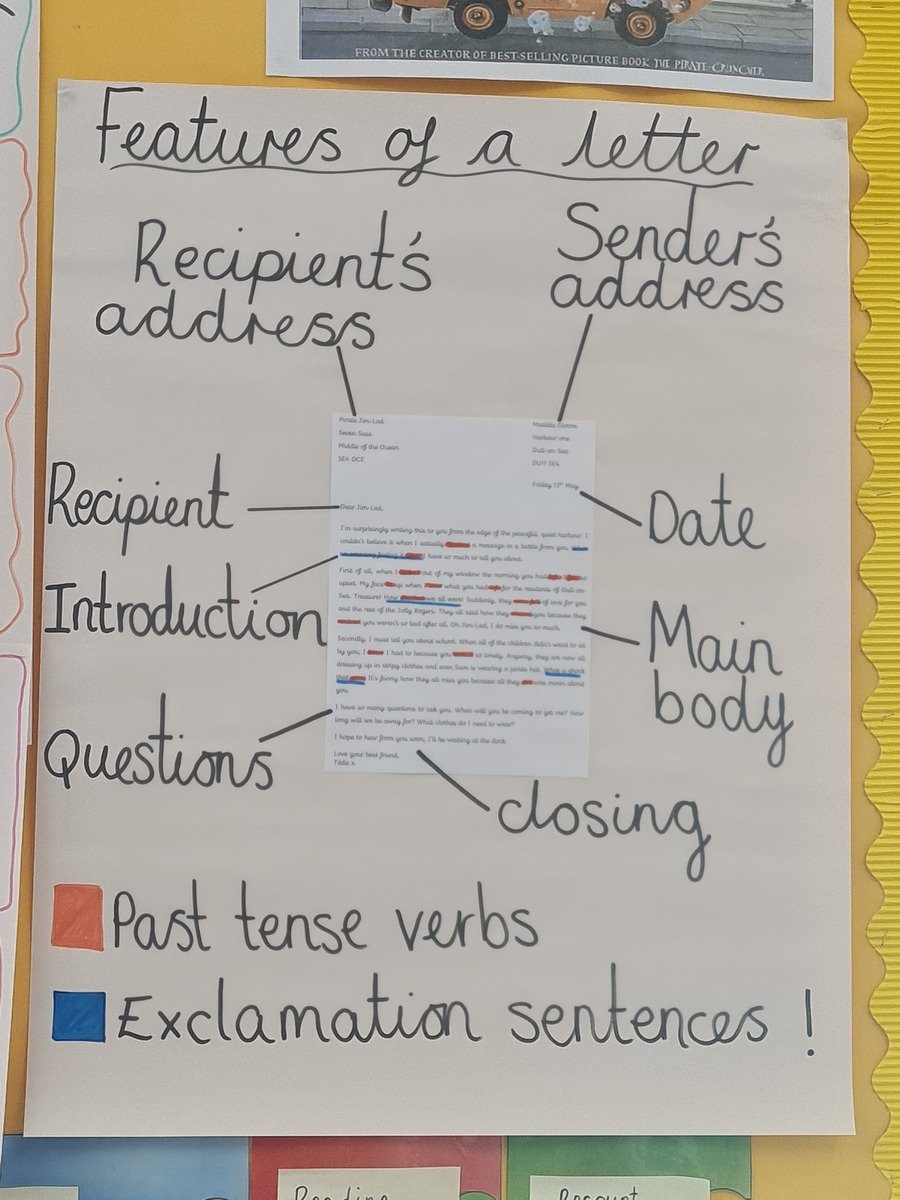 FROM THE CREATOR OF BEST-SELLING PICTURE BOOK THE PIRATE-CRUNCHER
Features of a letter
Recipient's
address
Sender's
address
Pirate Jim-Lad
Seven Seas
Middle of the Ocean
SE4 OCE
Matilda
Harbour one
Dull-on-Sea
DU11 SE4
Friday 13th May
Recipient
Date
Dear Jim-Lad,
I'm surprisingly writing this to you from the edge of the peaceful, quiet harbour. I
couldn't believe it when I actually a message in a bottle from you.
an amazing feeling it I have so much to tell you about.
Introduction
First of all, when I out of my window the morning you had
upset. My face up when what you had for the residents of Dull-on-
Sea. Treasure! How we all were! Suddenly, they of love for you
and the rest of the Jolly Rogers. They all said how they you because they
you weren't so bad after all. Oh Jim-Lad, I do miss you so much.
Main
body
Secondly, I must tell you about school. When all of the children didn't want to sit
by you, I I had to because you so lonely. Anyway, they are now all
dressing up in stripy clothes and even Sam is wearing a pirate hat. What a shock
that It's funny how they all miss you because all they was moan about
you.
Questions
I have so many questions to ask you. When will you be coming to get me? How
long will we be away for? What clothes do I need to wear?
I hope to hear from you soon. I'll be waiting at the dock.
Love your best friend,
Tilda x
closing
Past tense verbs
Exclamation sentences !
Reading
Recount